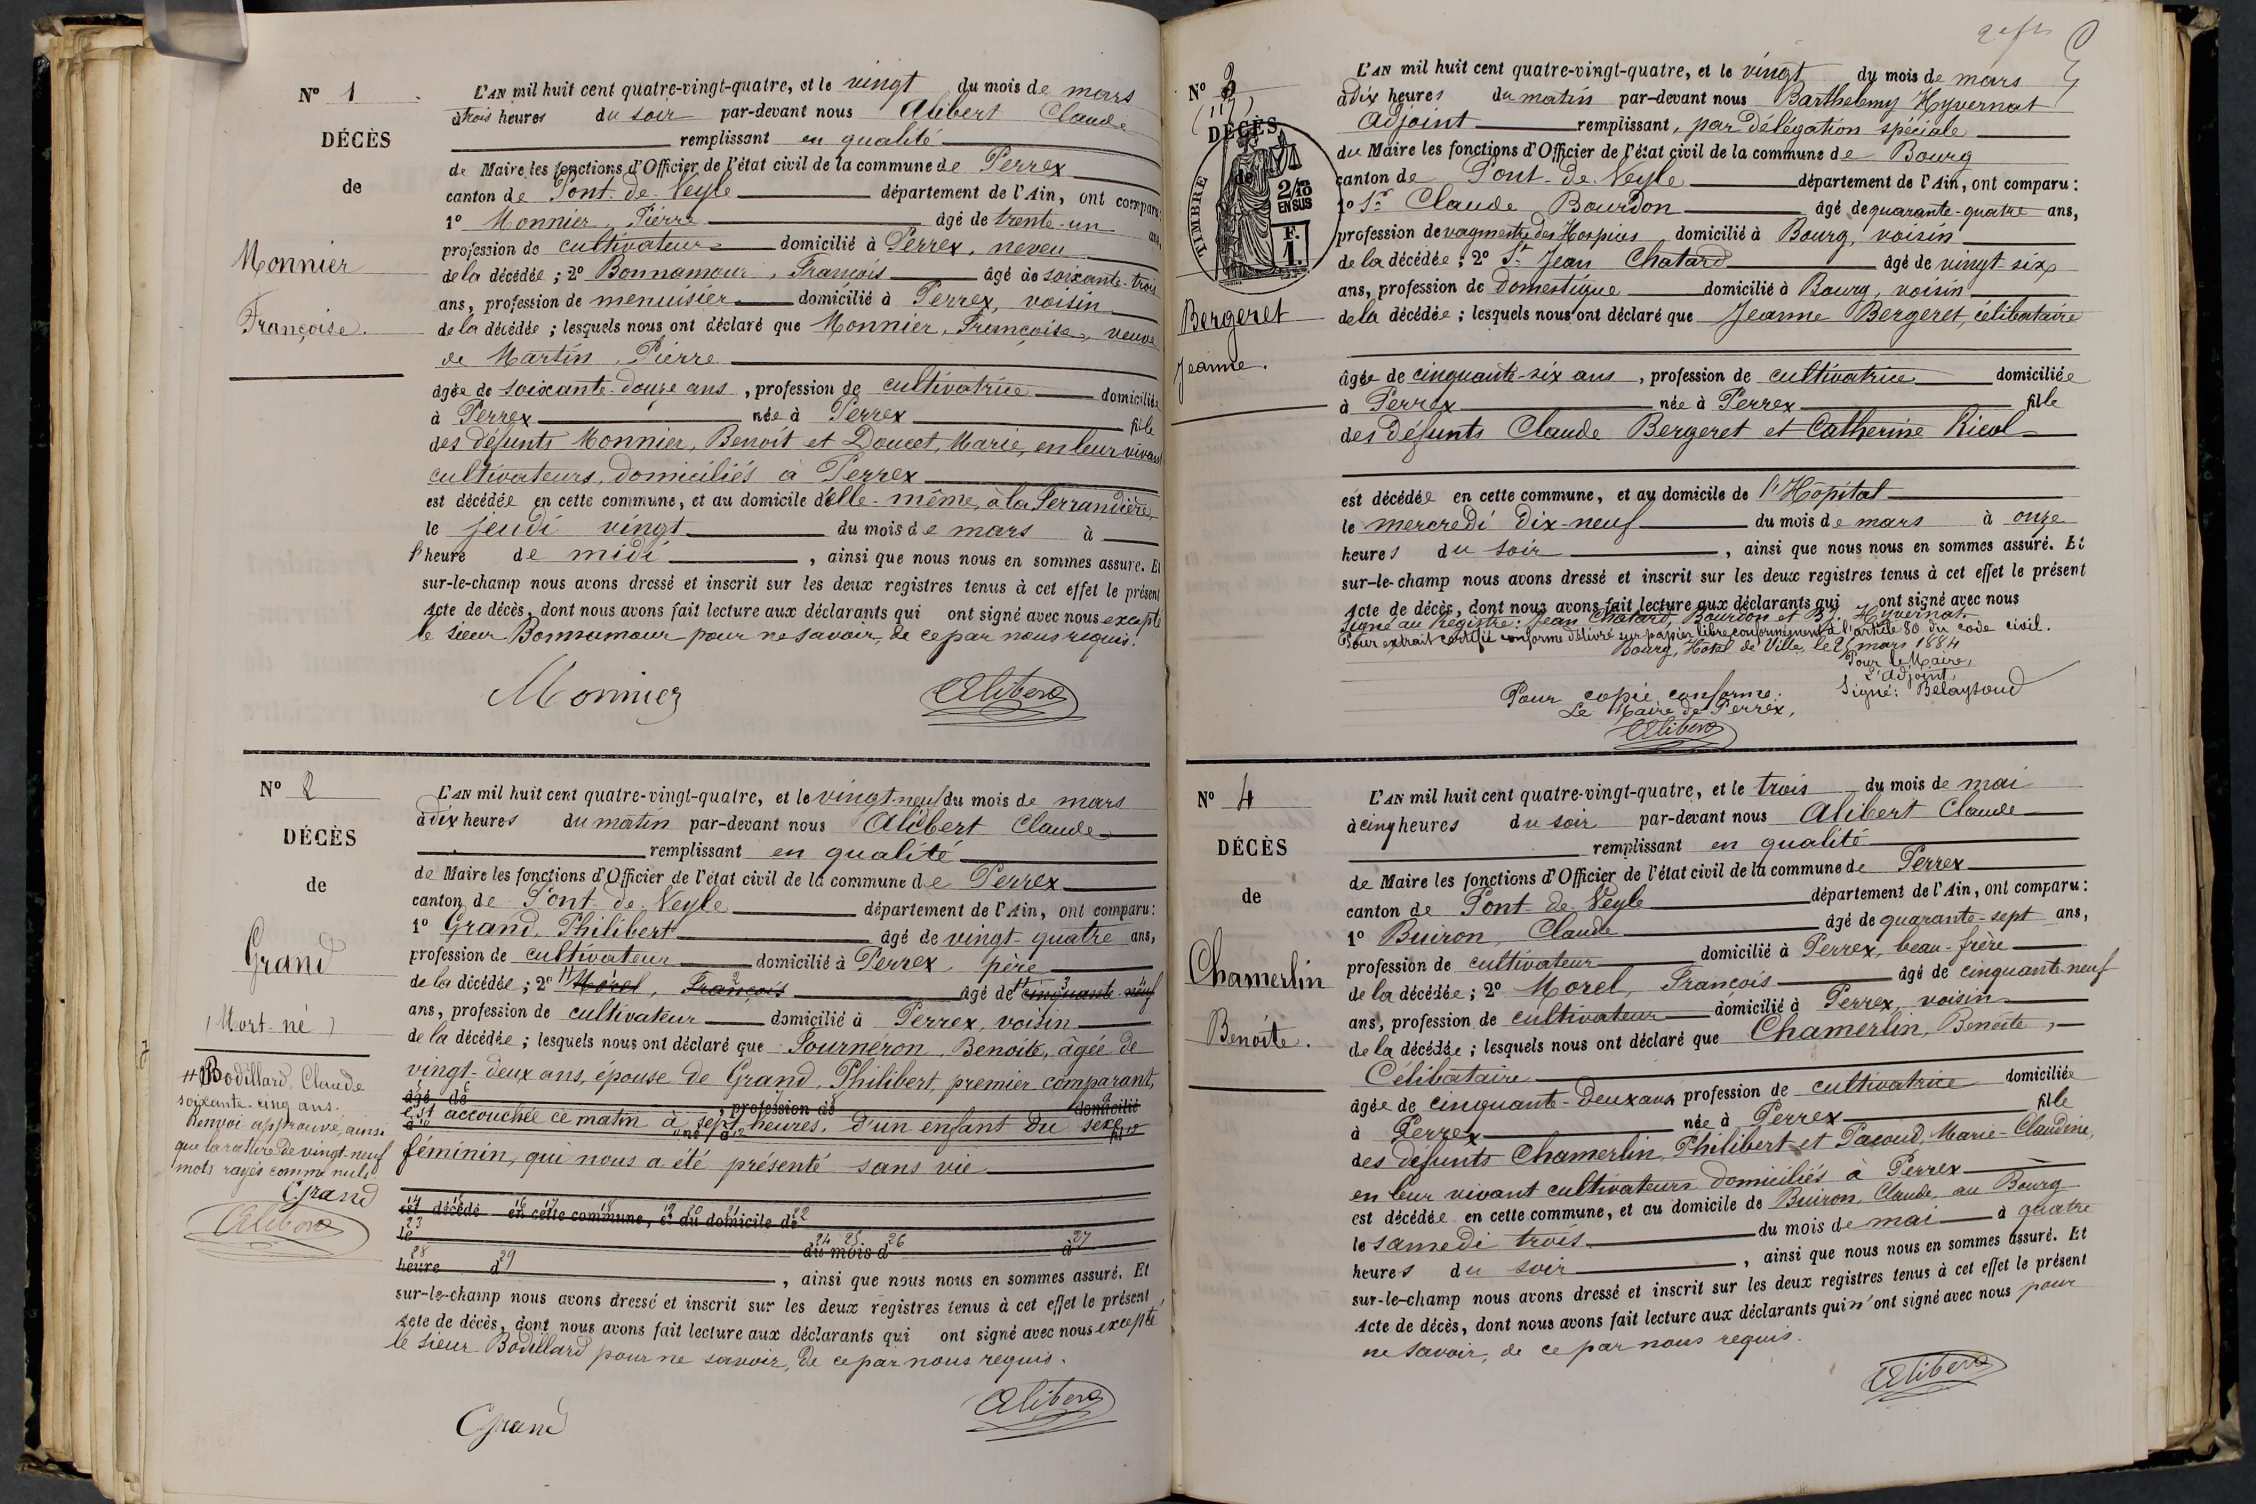 N° 1
DÉCÈS
de
Monnier
Françoise.
L'AN mil huit cent quatre-vingt-quatre, et le vingt du mois de mars
à trois heures du soir par-devant nous Alibert Claude
remplissant en qualité
de Maire les fonctions d'Officier de l'état civil de la commune de Perrex
canton de Pont-de-Veyle département de l'Ain, ont comparu:
1° Monnier, Pierre âgé de trente-un ans,
profession de cultivateur domicilié à Perrex, neveu
de la décédée ; 2° Bonnamour, François âgé de soixante-trois
ans, profession de menuisier domicilié à Perrex, voisin
de la décédée ; lesquels nous ont déclaré que Monnier, Françoise, veuve
de Martin, Pierre
âgée de soixante-douze ans, profession de cultivatrice domiciliée
à Perrex née à Perrex fille
des défunts Monnier, Benoît et Doucet, Marie, en leur vivant
cultivateurs, domiciliés à Perrex
est décédée en cette commune, et au domicile d'elle-même, à la Serrandière,
le jeudi vingt du mois de mars à
l'heure de midi, ainsi que nous nous en sommes assuré. Et
sur-le-champ nous avons dressé et inscrit sur les deux registres tenus à cet effet le présent
Acte de décès, dont nous avons fait lecture aux déclarants qui ont signé avec nous excepté
le sieur Bonnamour pour ne savoir, de ce par nous requis.
Monnier Alibert
N° 2
DÉCÈS
de
Grand
(Mort-né)
Bodillard, Claude
soixante-cinq ans.
Renvoi approuvé, ainsi
que la rature de vingt-neuf
mots rayés comme nuls.
Grand
Alibert
L'AN mil huit cent quatre-vingt-quatre, et le vingt-neuf du mois de mars
à dix heures du matin par-devant nous Alibert Claude
remplissant en qualité
de Maire les fonctions d'Officier de l'état civil de la commune de Perrex
canton de Pont-de-Veyle département de l'Ain, ont comparu:
1° Grand, Philibert âgé de vingt-quatre ans,
profession de cultivateur domicilié à Perrex, père
de la décédée ; 2° Morel, François âgé de cinquante-neuf
ans, profession de cultivateur domicilié à Perrex, voisin
de la décédée ; lesquels nous ont déclaré que Sourneron, Benoite, âgée de
vingt-deux ans, épouse de Grand, Philibert, premier comparant,
âgé de , profession de domicilié
est accouchée ce matin à sept heures, d'un enfant du sexe
à né à fil
féminin, qui nous a été présenté sans vie
est décédé en cette commune, et au domicile de
le du mois d à
heure d , ainsi que nous nous en sommes assuré. Et
sur-le-champ nous avons dressé et inscrit sur les deux registres tenus à cet effet le présent
Acte de décès, dont nous avons fait lecture aux déclarants qui ont signé avec nous excepté
le sieur Bodillard pour ne savoir, de ce par nous requis.
Grand Alibert
N° 3
DÉCÈS
de
TIMBRE
2/10 EN SUS
F. 1.
Bergeret
Jeanne.
L'AN mil huit cent quatre-vingt-quatre, et le vingt du mois de mars
à dix heures du matin par-devant nous Barthelemy Hyvernat
Adjoint remplissant, par délégation spéciale
du Maire les fonctions d'Officier de l'état civil de la commune de Bourg
canton de Pont-de-Veyle département de l'Ain, ont comparu:
1° Sr Claude Bourdon âgé de quarante-quatre ans,
profession de vaguemestre des Hospices domicilié à Bourg, voisin
de la décédée ; 2° Sr Jean Chatard âgé de vingt-six
ans, profession de domestique domicilié à Bourg, voisin
de la décédée ; lesquels nous ont déclaré que Jeanne Bergeret, célibataire
âgée de cinquante-six ans, profession de cultivatrice domiciliée
à Perrex née à Perrex fille
des défunts Claude Bergeret et Catherine Ricol
est décédée en cette commune, et au domicile de l'Hôpital
le mercredi dix-neuf du mois de mars à onze
heures du soir, ainsi que nous nous en sommes assuré. Et
sur-le-champ nous avons dressé et inscrit sur les deux registres tenus à cet effet le présent
Acte de décès, dont nous avons fait lecture aux déclarants qui ont signé avec nous
Signé au Registre: Jean Chatard, Bourdon et By. Hyvernat.
Pour extrait certifié conforme délivré sur papier libre conformément à l'article 80 du code civil.
Bourg, Hôtel de Ville, le 25 mars 1884
Pour le Maire,
L'Adjoint,
Signé: Belaysoud
Pour copie conforme:
Le Maire de Perrex,
Alibert
N° 4
DÉCÈS
de
Chamerlin
Benoîte.
L'AN mil huit cent quatre-vingt-quatre, et le trois du mois de mai
à cinq heures du soir par-devant nous Alibert Claude
remplissant en qualité
de Maire les fonctions d'Officier de l'état civil de la commune de Perrex
canton de Pont-de-Veyle département de l'Ain, ont comparu:
1° Buiron, Claude âgé de quarante-sept ans,
profession de cultivateur domicilié à Perrex, beau-frère
de la décédée ; 2° Morel, François âgé de cinquante-neuf
ans, profession de cultivateur domicilié à Perrex, voisin
de la décédée ; lesquels nous ont déclaré que Chamerlin, Benoîte,
Célibataire
âgée de cinquante-deux ans profession de cultivatrice domiciliée
à Perrex née à Perrex fille
des défunts Chamerlin, Philibert et Pacoud, Marie-Claudine,
en leur vivant cultivateurs domiciliés à Perrex
est décédée en cette commune, et au domicile de Buiron, Claude, au Bourg
le samedi trois du mois de mai à quatre
heures du soir, ainsi que nous nous en sommes assuré. Et
sur-le-champ nous avons dressé et inscrit sur les deux registres tenus à cet effet le présent
Acte de décès, dont nous avons fait lecture aux déclarants qui n'ont signé avec nous pour
ne savoir, de ce par nous requis.
Alibert